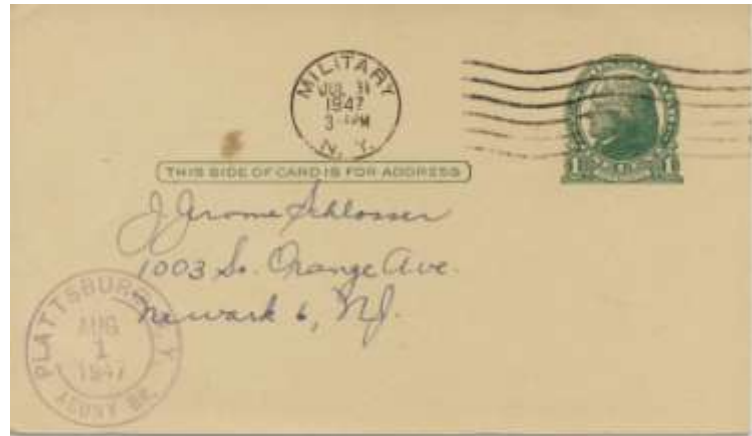 MILITARY
JUL 31
1947
3 PM
N. Y.
THIS SIDE OF CARD IS FOR ADDRESS
J Jerome Schlosser
1003 So. Orange Ave.
Newark 6, NJ.
PLATTSBURG, N.Y.
AUG
1
1947
ACUNY BR.
1 1